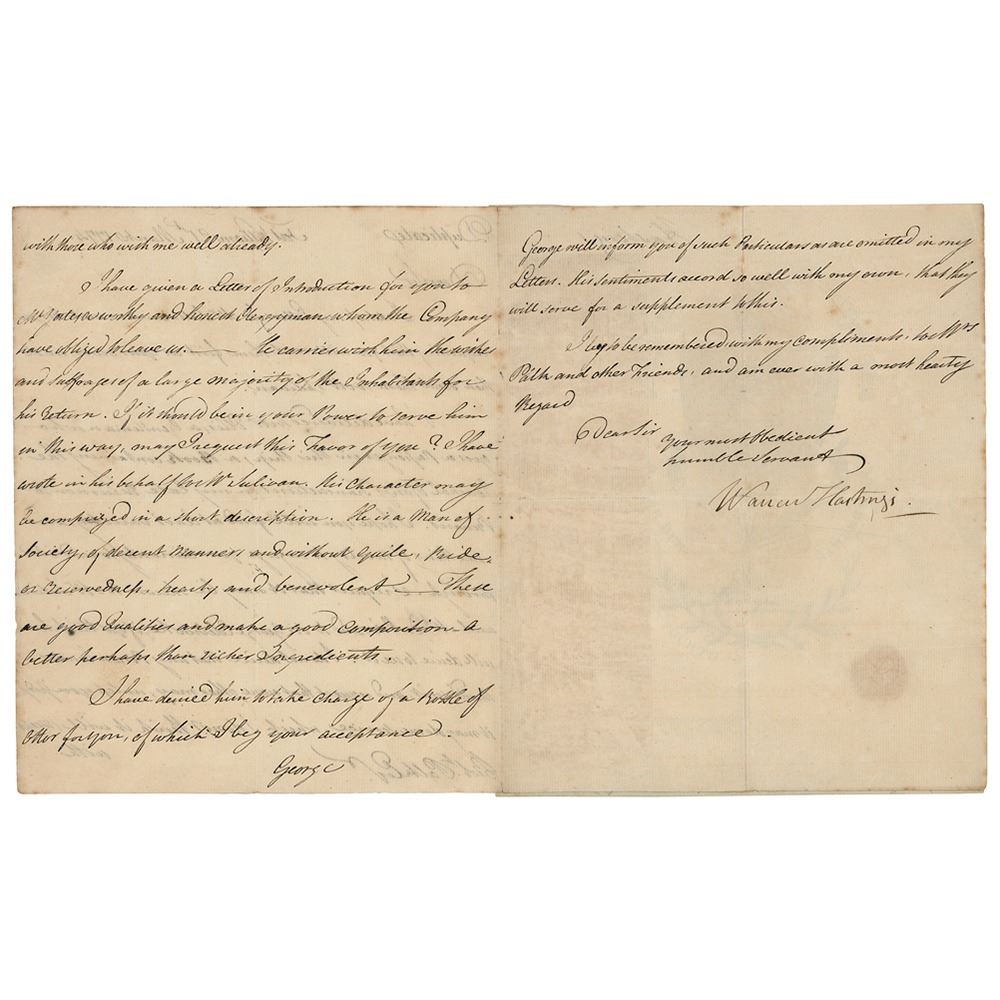 with those who wish me well already.
I have given a Letter of Introduction for you to
Mr Yates a worthy and honest Clergyman whom the Company
have obliged to leave us. — He carries with him the wishes
and suffrages of a large majority of the Inhabitants for
his return. If it should be in your Power to serve him
in this way, may I request this Favor of you? I have
wrote in his behalf to Mr Sulivan. His Character may
be comprized in a short description. He is a Man of
Society, of decent Manners and without Guile, Pride
or reservedness, hearty and benevolent — These
are good Qualities and make a good Composition a
better perhaps than richer Ingredients.
I have desired him to take Charge of a Bottle of
Otter for you, of which I beg your acceptance.
George
George will inform you of such Particulars as are omitted in my
Letters. His sentiments accord so well with my own, that they
will serve for a supplement to this.
I beg to be remembered with my Compliments, to Mrs
Palk and other Friends, and am ever with a most hearty
Regard
Dear Sir
Your most Obedient
humble Servant
Warren Hastings.
Duplicate